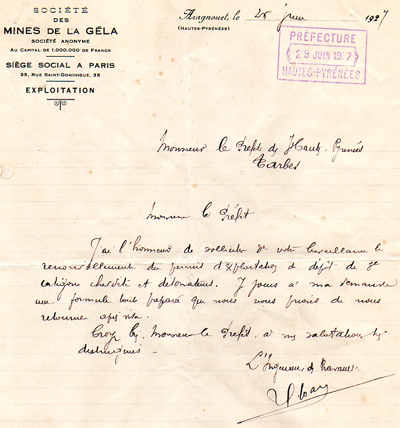 SOCIÉTÉ
DES
MINES DE LA GÉLA
SOCIÉTÉ ANONYME
AU CAPITAL DE 1.000.000 DE FRANCS
SIÈGE SOCIAL A PARIS
35, RUE SAINT-DOMINIQUE, 35
EXPLOITATION
Aragnouet, le 28 juin 1927
(HAUTES-PYRÉNÉES)
PRÉFECTURE
29 JUIN 19 7
HAUTES-PYRÉNÉES
Monsieur le Préfet des Htes Pyrénées
Tarbes
Monsieur le Préfet
J'ai l'honneur de solliciter de votre bienveillance le
renouvellement du permis d'exploitation de dépôt de 2e
catégorie cheddite et détonateurs. Je joins à ma demande
une formule tout préparé que nous vous prions de nous
retourner après visa.
Croyez, Monsieur le Préfet, à mes salutations
distinguées
L'Ingénieur des travaux